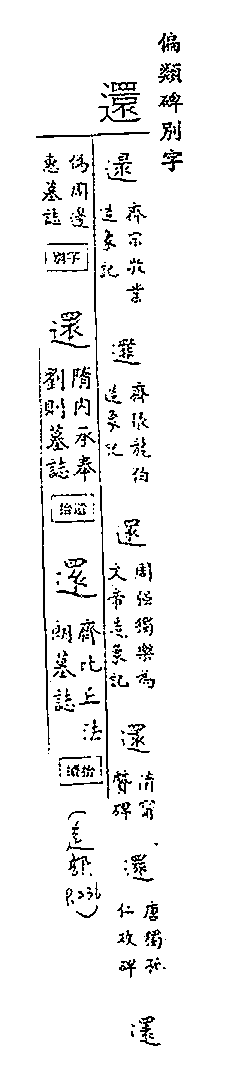 偏類碑別字
還
還 齊宋敬業造象記
還 齊張龍伯造象記
還 周強獨樂為文帝造象記
還 隋甯贙碑
還 唐獨孤仁政碑
還
偽周邊惠墓誌
還 隋內承奉劉則墓誌
還 齊比丘法朗墓誌
(辵部 P.236)